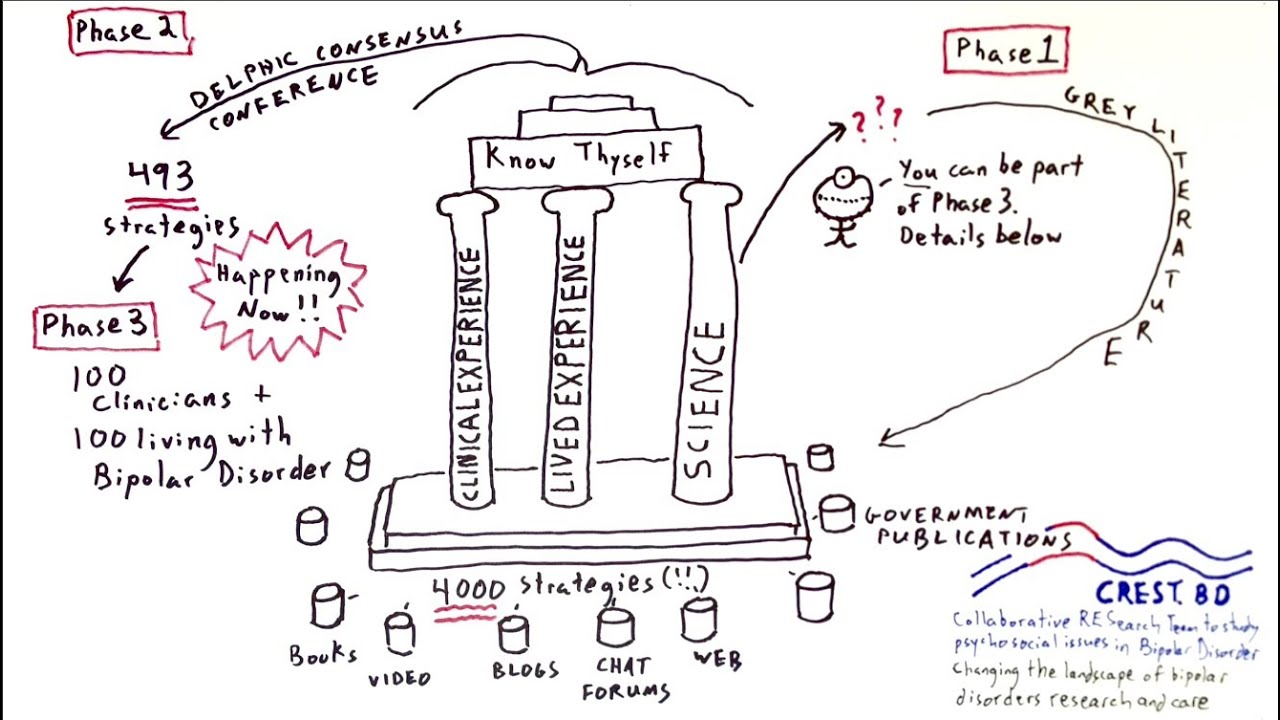 Phase 2
DELPHIC CONSENSUS
CONFERENCE
493
strategies
Happening
Now!!
Phase 3
100
Clinicians +
100 living with
Bipolar Disorder
Know Thyself
CLINICAL EXPERIENCE
LIVED EXPERIENCE
SCIENCE
Phase 1
???
GREY LITERATURE
You can be part
of Phase 3.
Details below
4000 strategies (!!)
Books
VIDEO
BLOGS
CHAT
FORUMS
WEB
GOVERNMENT
PUBLICATIONS
CREST.BD
Collaborative RESearch Team to study
psychosocial issues in Bipolar Disorder
Changing the landscape of bipolar
disorders research and care